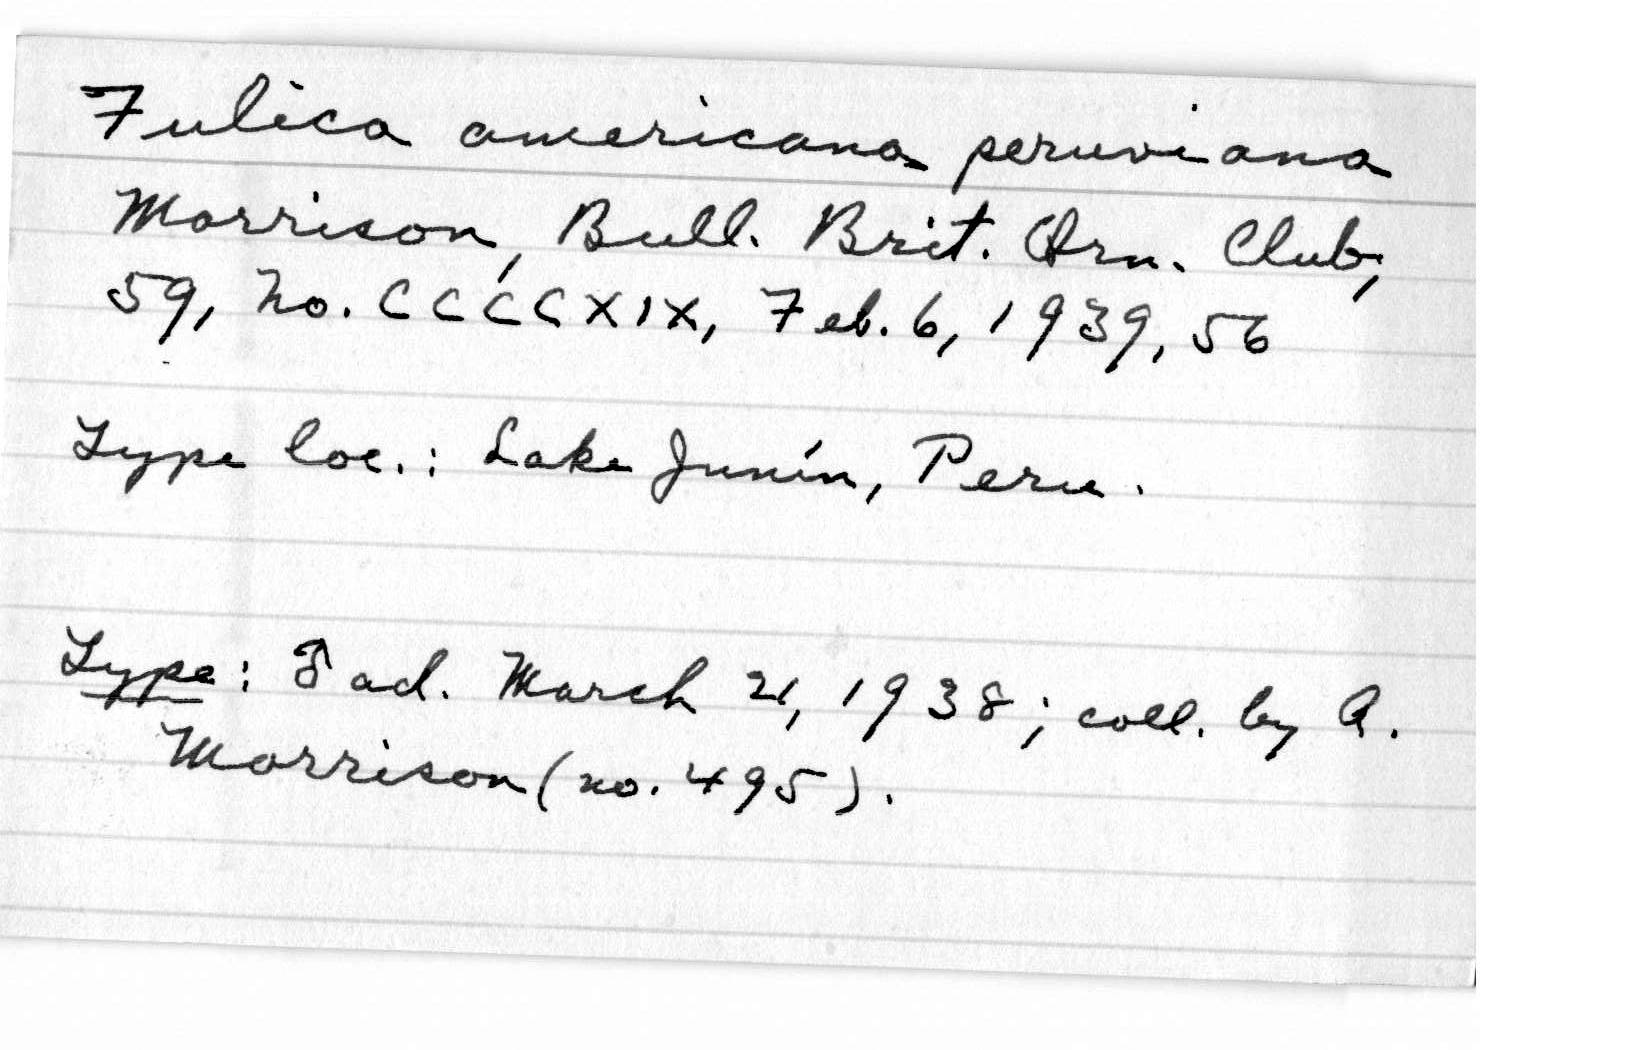 Fulica americana peruviana
Morrison, Bull. Brit. Orn. Club,
59, No. CCCCXIX, Feb. 6, 1939, 56
Type loc.: Lake Junín, Peru.
Type: ♂ ad. March 21, 1938; coll. by A.
Morrison (no. 495).